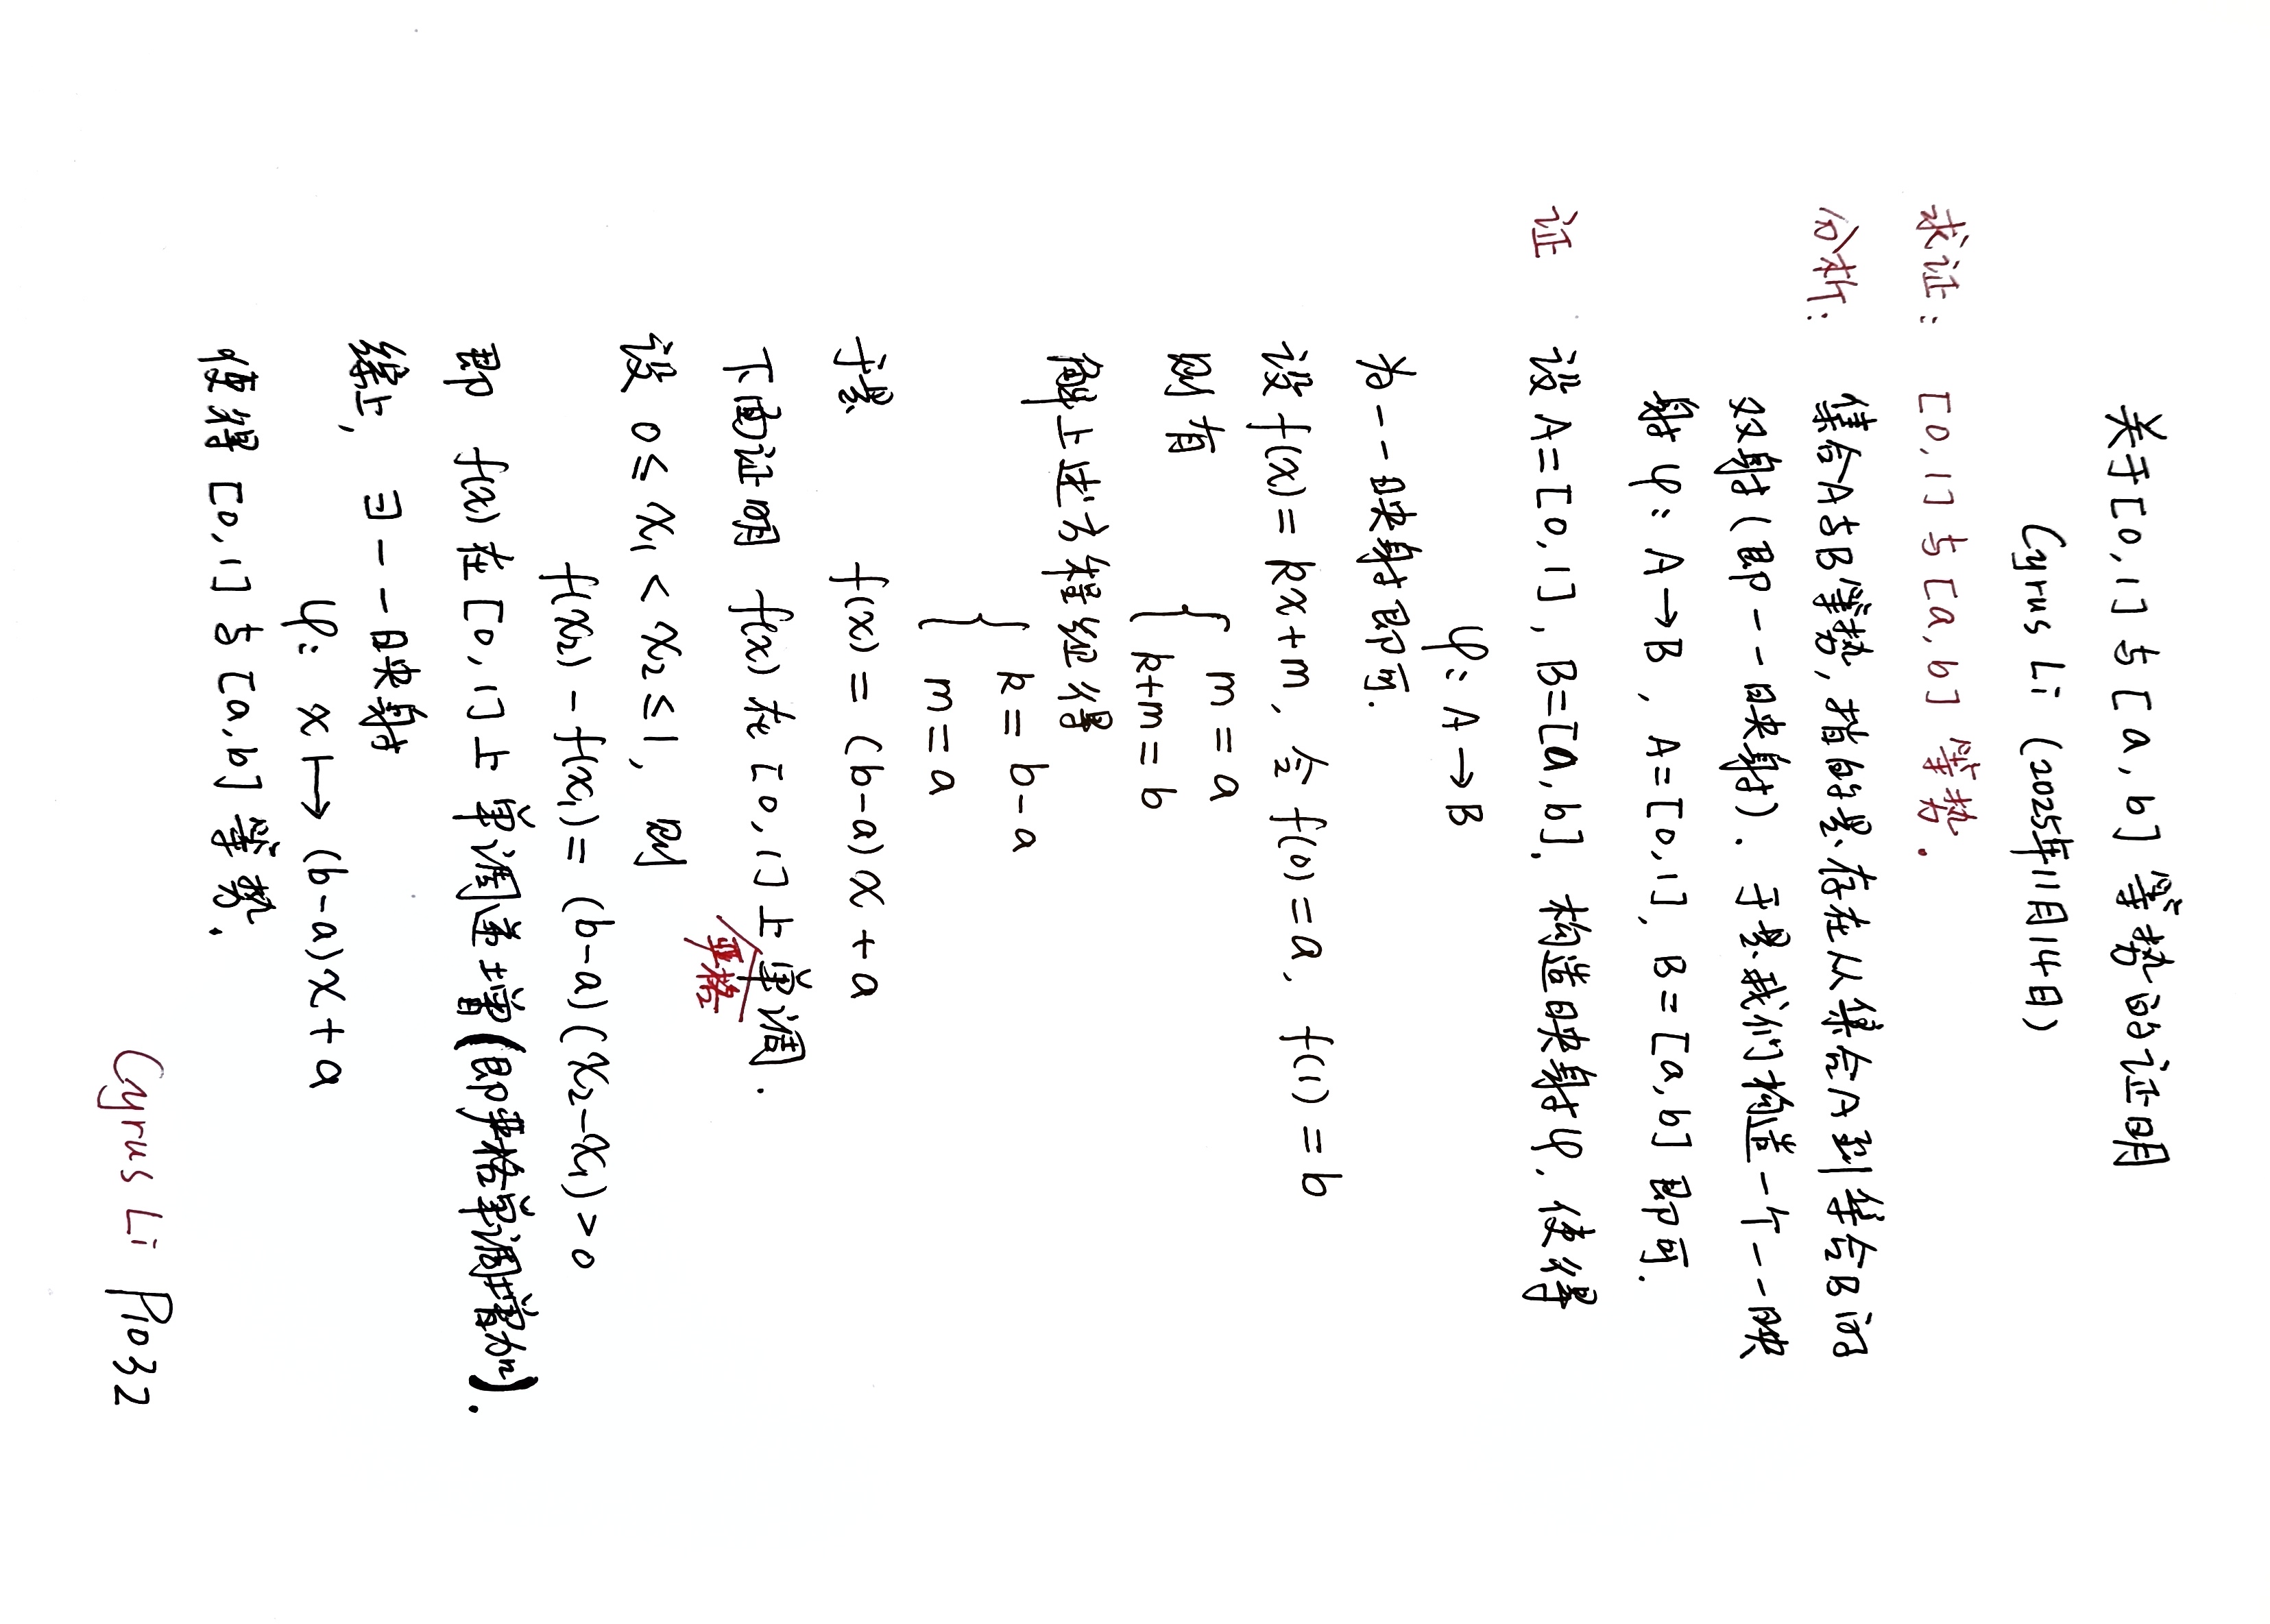 关于[0,1]与[a,b]等势的证明
Cyrus Li (2025年11月14日)
求证: [0,1]与[a,b]等势.
分析: 集合A与B等势,指的是存在从集合A到集合B的
双射(即一一映射). 于是我们构造一个一一映
射φ: A→B, A=[0,1], B=[a,b]即可.
证 设A=[0,1], B=[a,b]. 构造映射φ, 使得
φ: A→B
为一一映射即可.
设f(x)=kx+m, 令f(0)=a, f(1)=b
则有 { m=a
k+m=b
解上述方程组得
{ k=b-a
m=a
于是 f(x)=(b-a)x+a
下面证明 f(x)在[0,1]上严格单调.
设 0≤x₁<x₂≤1, 则
f(x₂)-f(x₁)=(b-a)(x₂-x₁)>0
即 f(x)在[0,1]上单调递增(即严格单调增加).
综上, ∃一一映射
φ: x↦(b-a)x+a
使得[0,1]与[a,b]等势.
Cyrus Li P1032